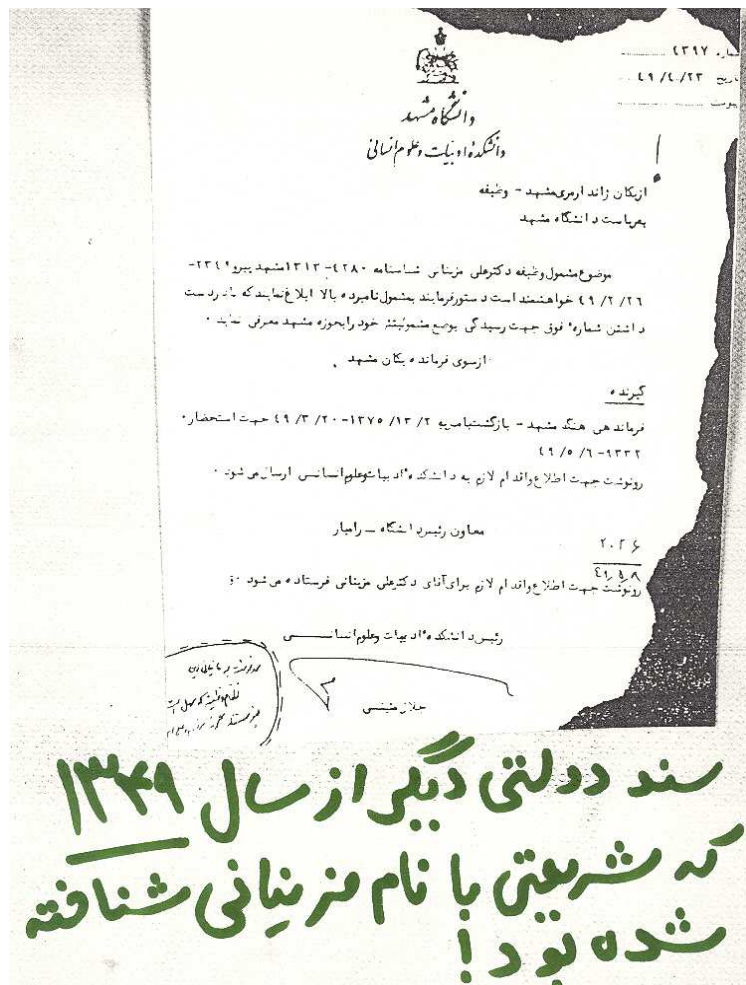 شماره ٤٣٩٧
تاریخ ٤٩/٤/٢٣
پیوست
دانشگاه مشهد
دانشکدهٔ ادبیات و علوم انسانی
ازیکان ژاندارمری مشهد - وظیفه
به ریاست دانشگاه مشهد
موضوع مشمول وظیفه دکترعلی مزینانی شناسنامه ٤٢٨٠-١٣١٣ مشهد پیرو ٢٣٤٩-
٤٩/٢/٢٦ خواهشمند است دستورفرمایند بمشمول نامبرده بالا ابلاغ نمایند که با دردست
داشتن شماره فوق جهت رسیدگی بوضع مشمولیتش خود را بحوزه مشهد معرفی نماید .
ازسوی فرمانده یکان مشهد .
گیرنده
فرماندهی هنگ مشهد - بازگشت بنامریه ٢/ ١٣/ ١٣٧٥-٢٠/ ٣/ ٤٩ جهت استحضار .
٩٣٣٢-٦/ ٥/ ٤٩
رونوشت جهت اطلاع واقدام لازم به دانشکدهٔ ادبیات وعلوم انسانی ارسال می شود .
معاون رئیس دانشگاه – رامیار
٢٠٢۶
٤٩/٥/٨
رونوشت جهت اطلاع واقدام لازم برای آقای دکترعلی مزینانی فرستاده می شود .
رئیس دانشکدهٔ ادبیات وعلوم انسانی
جلال متینی
سند دولتی دیگر از سال ۱۳۴۹
که شریعتی با نام مزینانی شناخته
شده بود!